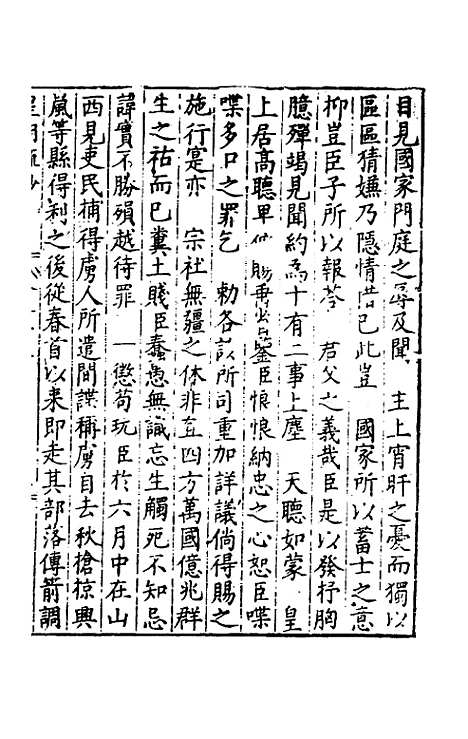 目見國家門庭之辱及聞　主上宵旰之憂而獨以
區區猜嫌乃隱情惜已此豈　國家所以蓄士之意
抑豈臣子所以報荅　君父之義哉臣是以發抒胸
臆殫竭見聞約爲十有二事上塵　天聽如蒙　皇
上居髙聽卑　賜　鉴臣悢悢納忠之心恕臣喋
喋多口之罪乞　勅各該所司重加詳議倘得賜之
施行寔亦　宗社無疆之休非直四方萬國億兆群
生之祜而已糞土賤臣蠢愚無識忘生觸死不知忌
諱實不勝殞越待罪　一懲苟玩臣於六月中在山
西見吏民捕得虜人所遣間諜稱虜自去秋搶掠興
嵐等縣得利之後從春首以来即走其部落傳箭調